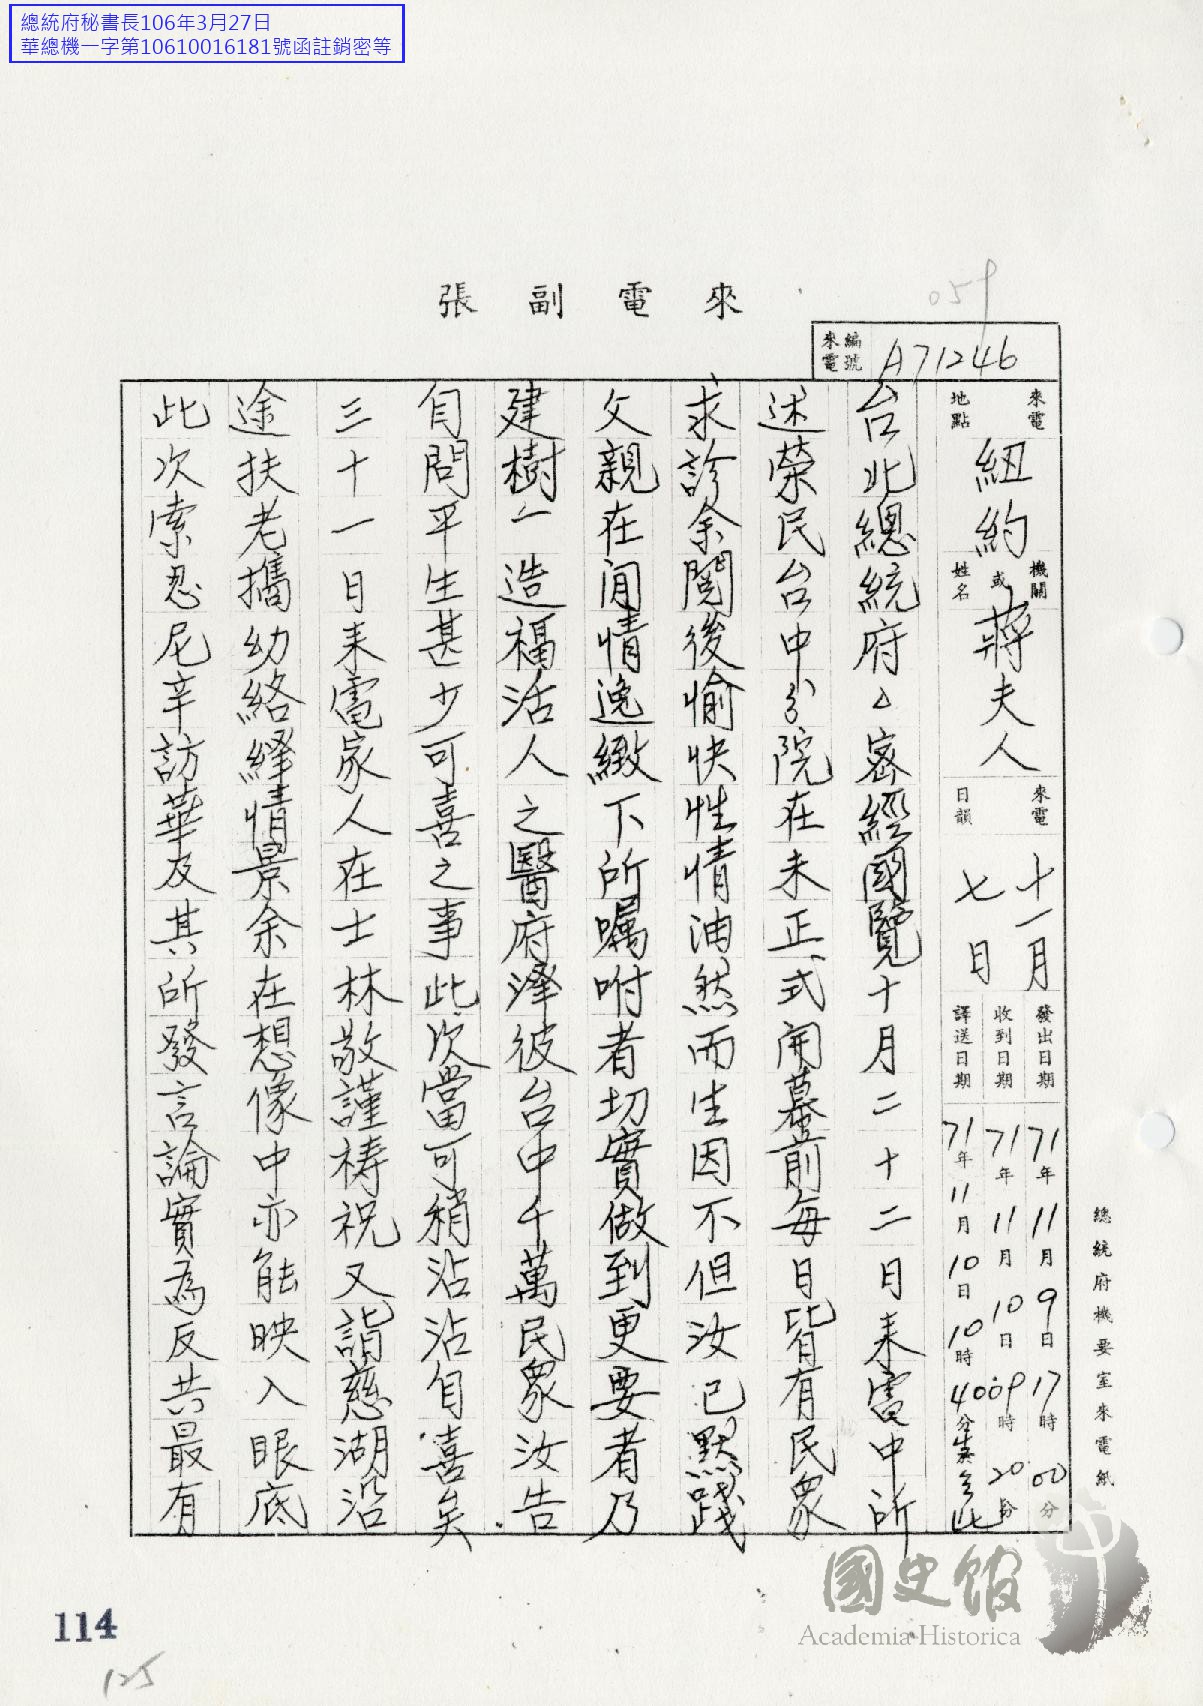 總統府秘書長106年3月27日
華總機一字第10610016181號函註銷密等
059
來電副張
來電編號 A71246
來電地點 紐約
機關或姓名 蔣夫人
來電日韻 十一月七日
發出日期 71年11月9日17時00分
收到日期 71年11月10日09時20分
譯送日期 71年11月10日10時40分
台北總統府△密經國覽十月二十二日來電中所
述榮民台中分院在未正式開幕前每日皆有民眾
求診余閱後愉快性情油然而生因不但汝已默踐
父親在閒情逸緻下所囑咐者切實做到更要者乃
建樹一造福活人之醫府澤彼台中千萬民眾汝告
自問平生甚少可喜之事此次當可稍沾沾自喜矣
三十一日來電家人在士林敬謹祷祝又詣慈湖沿
途扶老攜幼絡繹情景余在想像中亦能映入眼底
此次索忍尼辛訪華及其所發言論實為反共最有
總統府機要室來電紙
國史館
Academia Historica
114
125